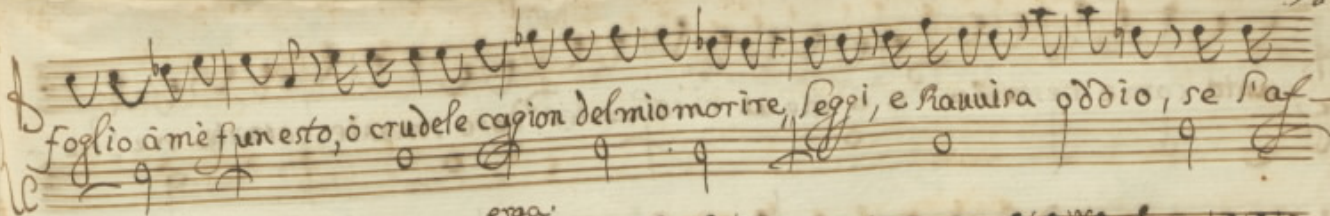 foglio à mè funesto, ò crudele cagion del mio morire, leggi, e rauuisa oddio, se l'af-